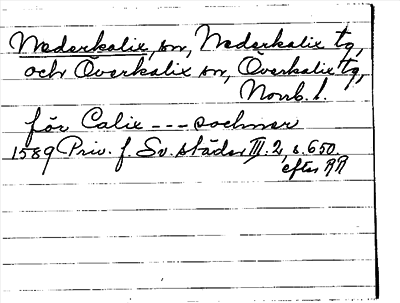 Nederkalix, sn, Nederkalix tg,
och Överkalix sn, Överkalix tg,
Norrb. l.
för Calix --- sochner
1589 Priv. f. Sv. städer III. 2, s. 650.
efter RR